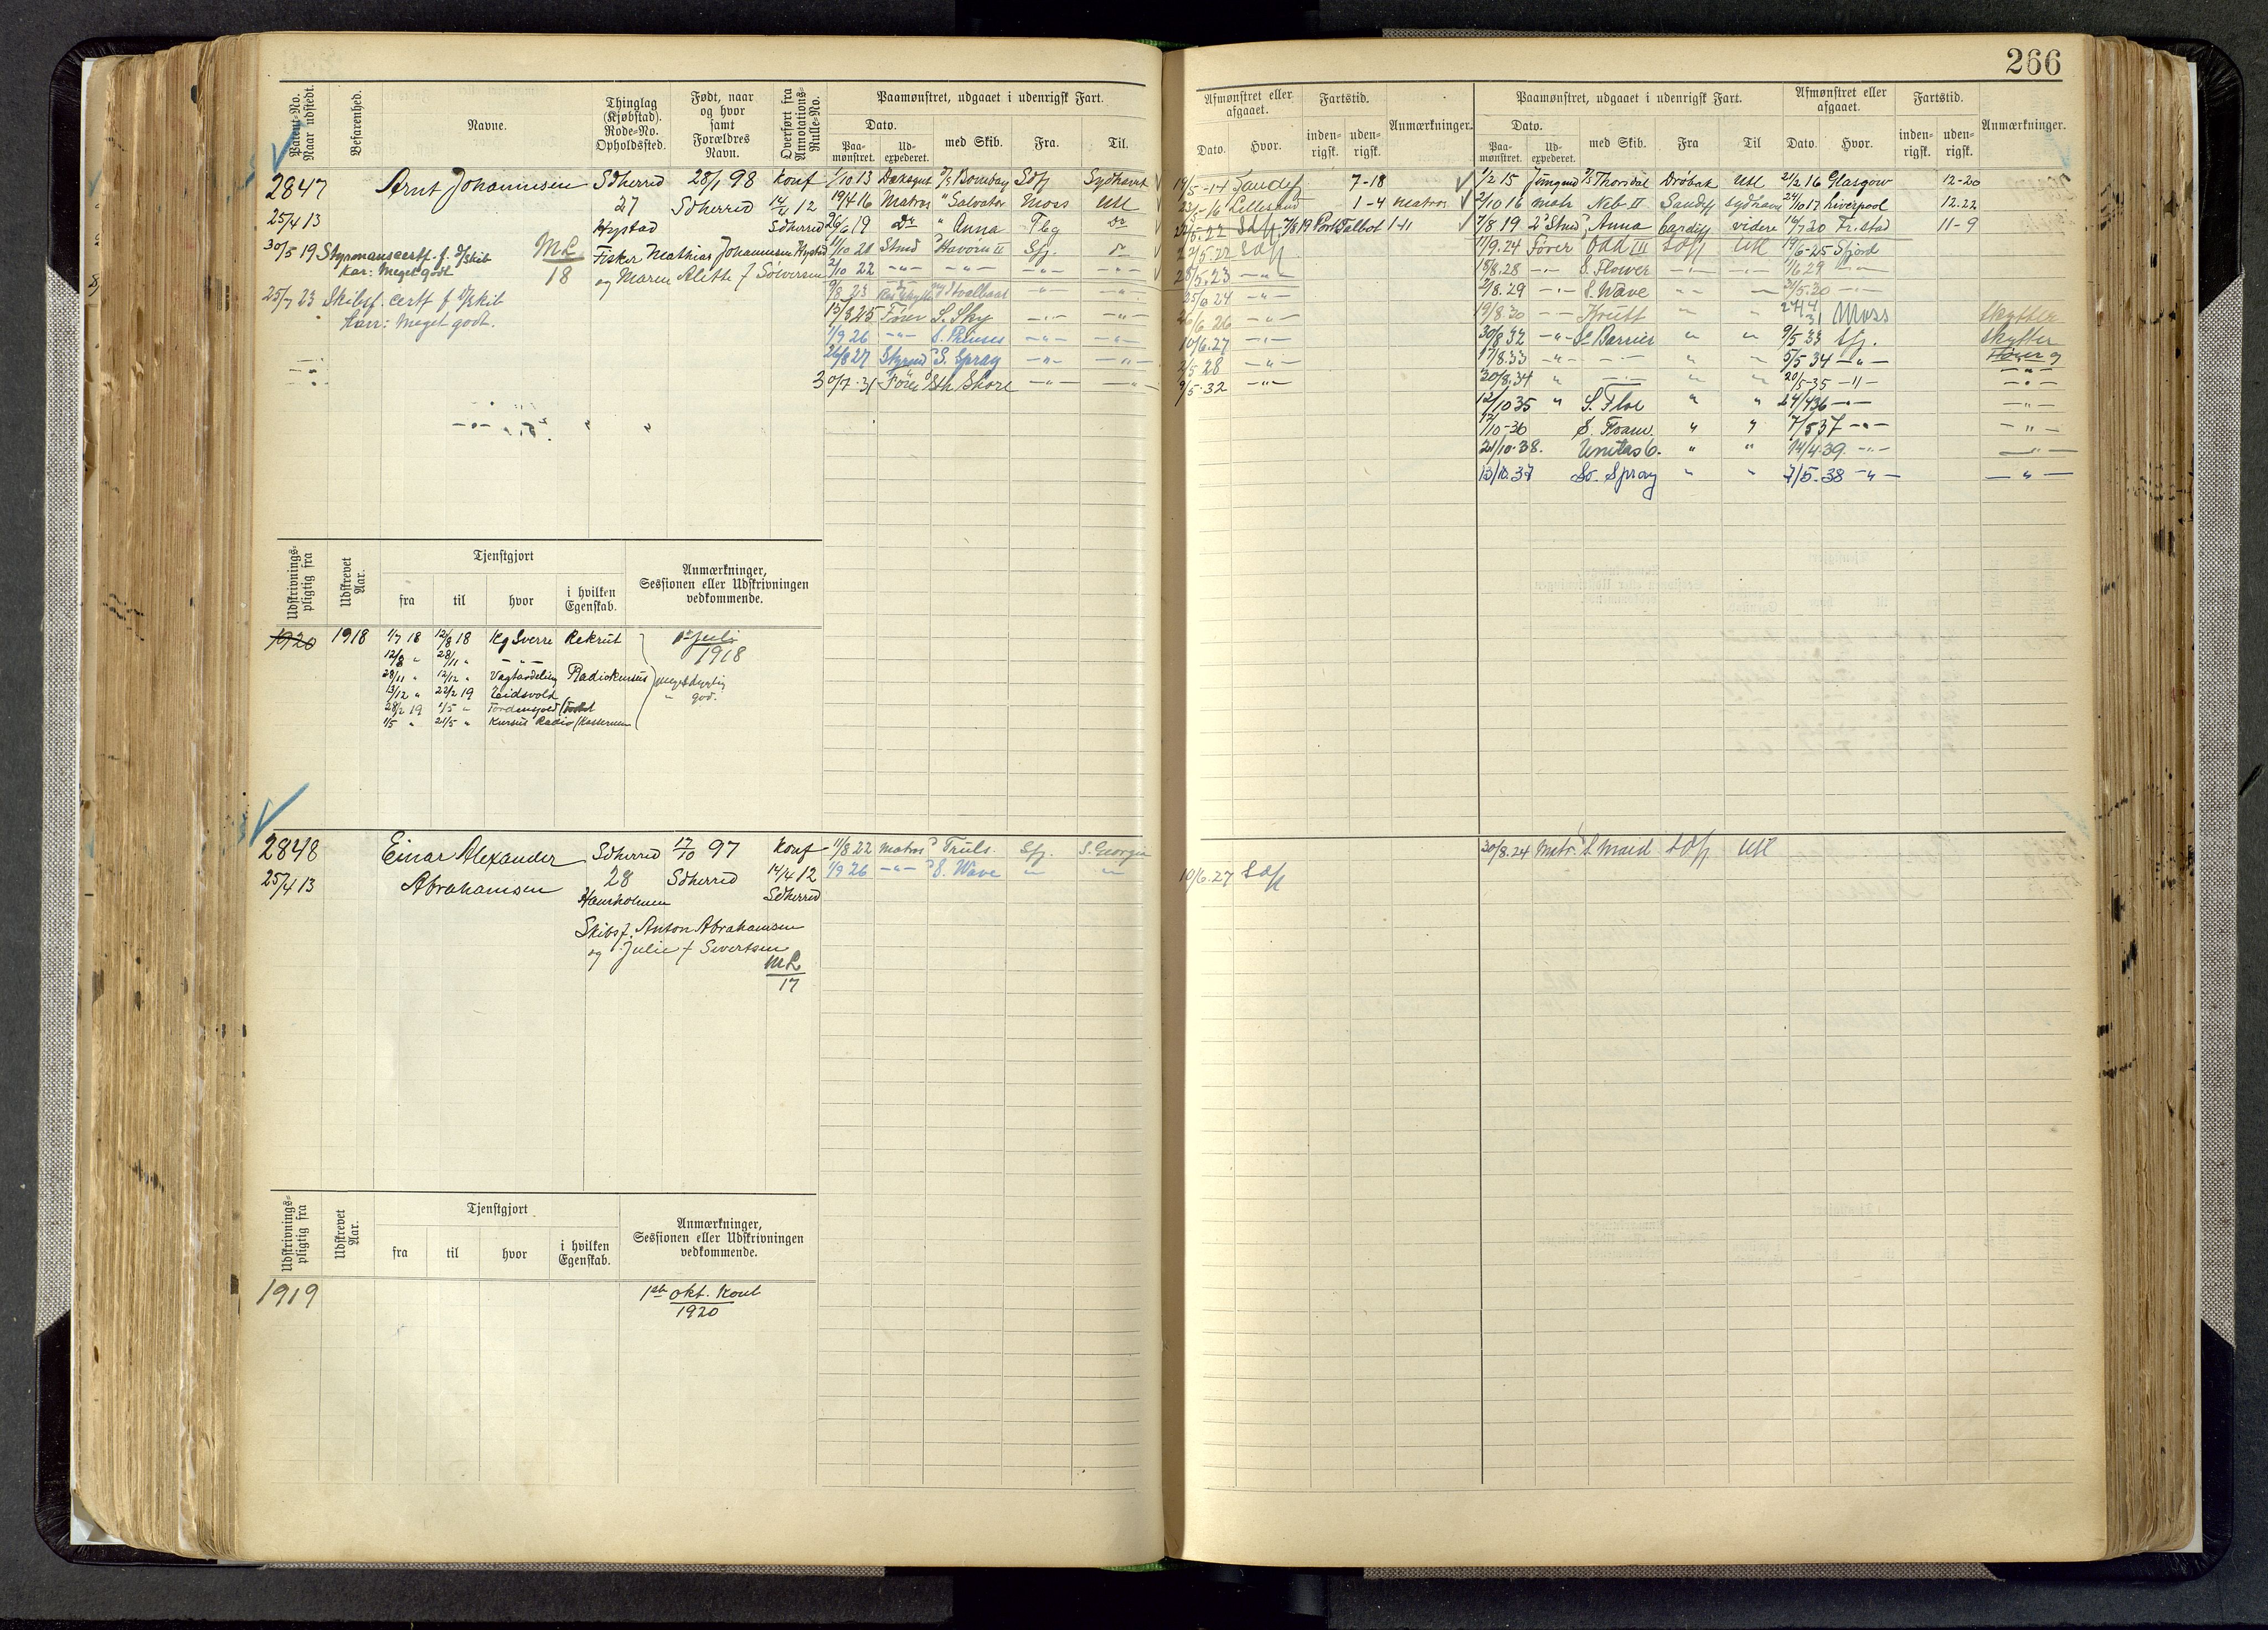 266
Patent-No. Naar udstedt.
Befarenhed.
Navne.
Thinglag (Kjøbstad). Rode-No. Opholdssted.
Født, naar og hvor samt Forældres Navn.
Overført fra Annotations-Rulle-No.
Paamønstret, udgaaet i udenrigsk Fart.
Dato.
Paa-mønstret.
Ud-expederet.
med Skib.
Fra.
Til.
Afmønstret eller afgaaet.
Dato.
Hvor.
Fartstid.
inden-rigsk.
uden-rigsk.
Anmærkninger.
Paamønstret, udgaaet i udenrigsk Fart.
Dato.
Paa-mønstret.
Ud-expederet.
med Skib.
Fra
Til
Afmønstret eller afgaaet.
Dato.
Hvor.
Fartstid.
inden-rigsk.
uden-rigsk.
Anmærkninger.
2847 Arnt Johannessen Sdherred 28/1 98 Konf
27 Sdherred 14/4 12
25/4 13 Hystad Sdherred
30/5 19 Styrmanscertf. f. D/skib ML Fisker Mathias Johannesen Hystad
Kar: Meget godt 18 og Maren Alethe f Sølversen
25/7 23 Skibsf. certf f D/skib
Karr: Meget godt.
1/10 13 Dæksgut Bombay Sdfj Sydhavet
19/4 16 Matros " Salvator Moss Utl
26/6 19 Do " Anna Tbg Do
11/10 21 Stmd Havorn II Sfj. Do
2/10 22 -"- -"- -"- -"-
9/8 23 Svalbard -"- -"-
15/8 25 Fører S. Sky -"- -"-
1/9 26 -"- S. Prinses -"- -"-
26/8 27 Styrmd S. Spray -"- -"-
30/7 31 Fører Sth Shore -"- -"-
19/5-14 Sandefj 7-18
23/5-16 Lillesand 1-4 matros
Sdfj 7/8 19 Port Talbot 1-11
2/5.22 Sdfj
28/5.23 -"-
25/6 24 -"-
26/6 26 -"-
10/6.27 -"-
2/5 28 -"-
9/5.32 -"-
1/2 15 Jungmd Thorsdal Drøbak Utl 21/2 16 Glasgow 12-20
2/10 16 matr Neb. II Sandefj sydhavet 24/10 17 Liverpool 12.22
7/8 19 2 Stmd Anna Cardiff videre 16/7 20 Fr.stad 11-9
11/9.24 Fører Odd III Sdfj Utl 19/6-25 Sfjord
18/8.28 -"- S. Flower -"- -"- 1/6 29 -"-
2/8.29 -"- S. Wave " " 2/5.30 -"-
19/8.30 -"- Krutt " " 24/4 31 Moss Skytter
30/8 32 -"- S. Barrier " " 9/5 33 Sfj. Skytter
17/8.33 -"- -"- " " 5/5 34 -"-
30/8.34 " -"- " " 20/5-35 -"- -"-
12/10 35 " S. Floe " " 24/4 36 -"- -"-
17/10-36 S. Foam. " " 7/5 37 -"- -"-
21/10.38. Unitas 6. " " 14/4.39. -"- -"-
13/10.37 So. Spray " " 7/5.38 -"- -"-
Udskrivnings-pligtig fra
Udskrevet Aar.
Tjenstgjort
fra
til
hvor
i hvilken Egenskab.
Anmærkninger, Sessionen eller Udskrivningen vedkommende.
1920 1918 1/7 18 12/8 18 Kg Sverre Rekrut 1st juli
12/8 " 28/11 " -"- 1918
28/11 " 12/12 " Vagtavdeling Radiokursus meget dygtig
13/12 " 22/2 19 Eidsvold " god.
28/2 19 1/5 " Tordenskjold
1/5 " 21/5 " Kursus Radio/Kasernen
2848 Einar Alexander Sdherred 17/10 97 Konf
25/4 13 Abrahamsen 28 Sdherred 14/4 12
Hauholmen Sdherred
Skibsf. Anton Abrahamsen
og Julie f Sivertsen
ML
17
11/8 22 Matros Truls Sfj. S. Georgia
1/9 26 -"- S. Wave " "
10/6.27 Sdfj
30/8.24 Matr S. Maid Sdfj Utl
Udskrivnings-pligtig fra
Udskrevet Aar.
Tjenstgjort
fra
til
hvor
i hvilken Egenskab.
Anmærkninger, Sessionen eller Udskrivningen vedkommende.
1919 1st okt. Kont
1920